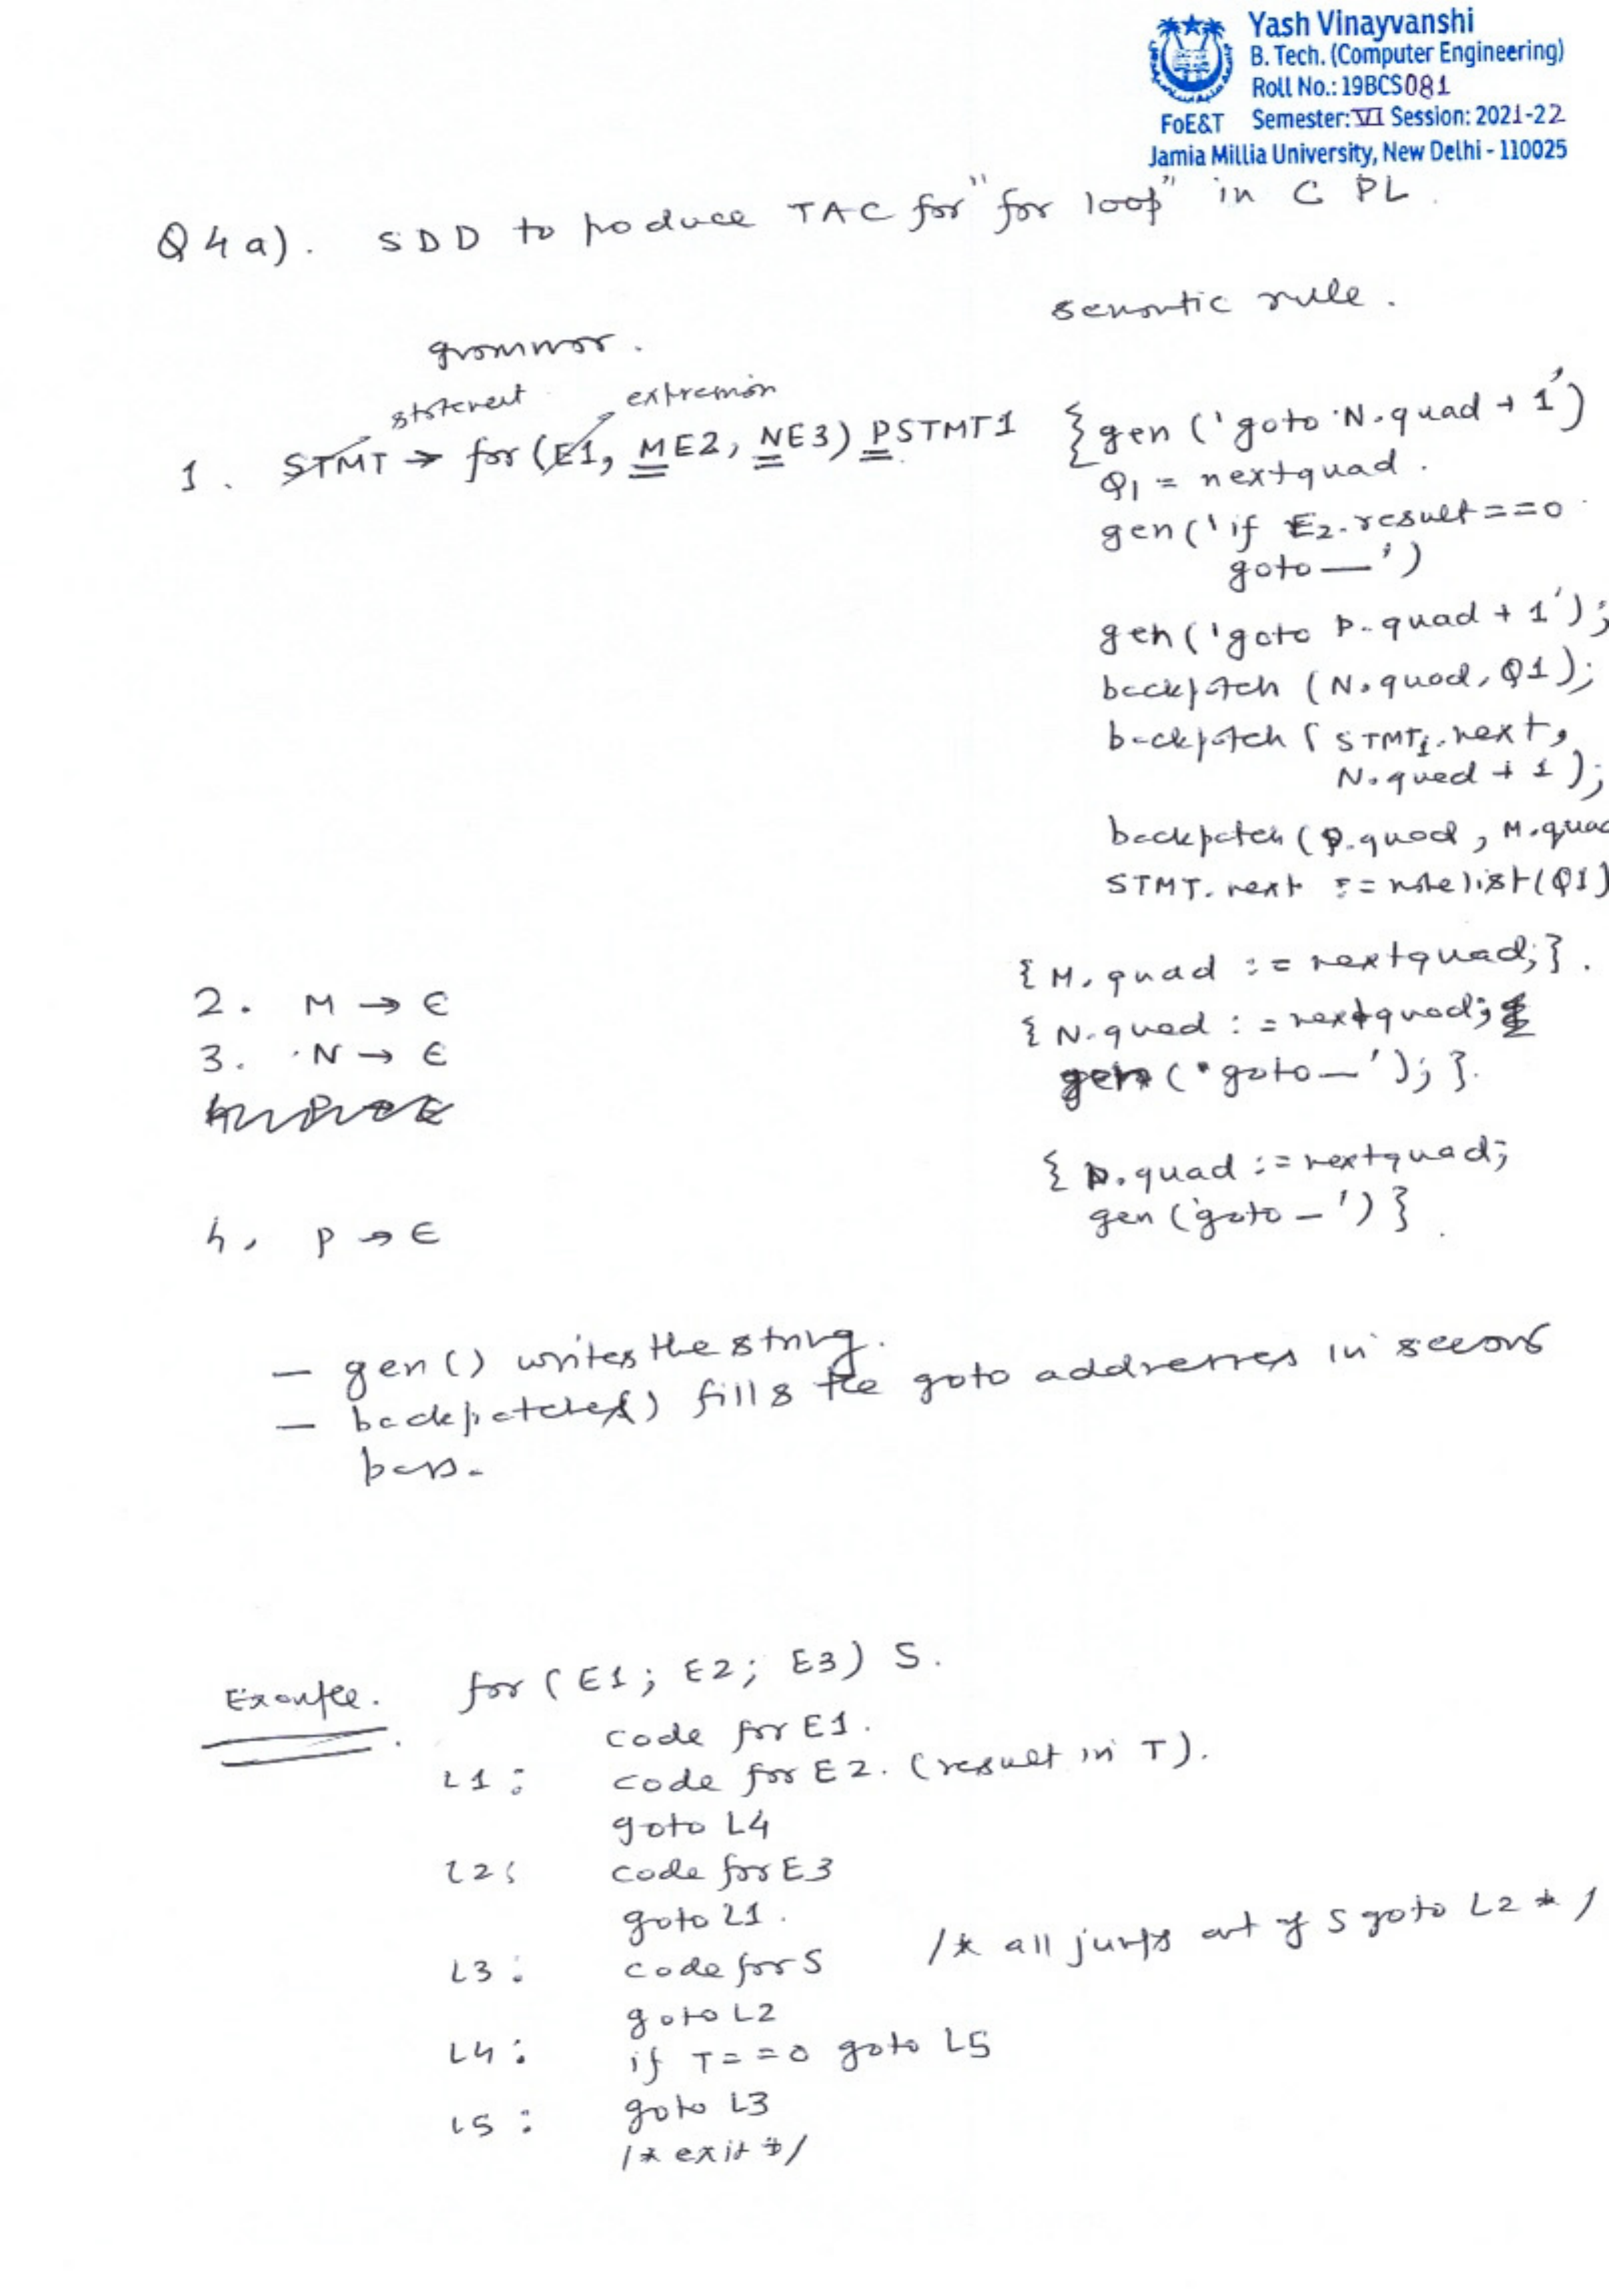 Yash Vinayvanshi
B. Tech. (Computer Engineering)
Roll No.: 19BCS081
FoE&T Semester: VI Session: 2021-22
Jamia Millia University, New Delhi - 110025
Q4a). SDD to produce TAC for "for loop" in C PL.
semantic rule.
grammar.
statement expression
1. STMT → for (E1, ME2, NE3) PSTMT1 {gen ('goto N.quad + 1')
Q1 = nextquad.
gen('if E2.result==0
goto—')
gen('goto P.quad + 1');
backpatch (N.quad, Q1);
backpatch (STMT1.next,
N.quad + 1);
backpatch (P.quad, M.quad
STMT.next := makelist(Q1)
2. M → ϵ {M.quad := nextquad;}.
3. N → ϵ {N.quad := nextquad;
gen('goto—');}.
4. P → ϵ {P.quad := nextquad;
gen('goto—')}.
— gen() writes the string.
— backpatches() fills the goto addresses in
pass.
Example. for (E1; E2; E3) S.
code for E1.
L1: code for E2. (result in T).
goto L4
L2: code for E3
goto L1.
L3: code for S /* all jumps out of S goto L2 */
goto L2
L4: if T==0 goto L5
goto L3
L5: /* exit */